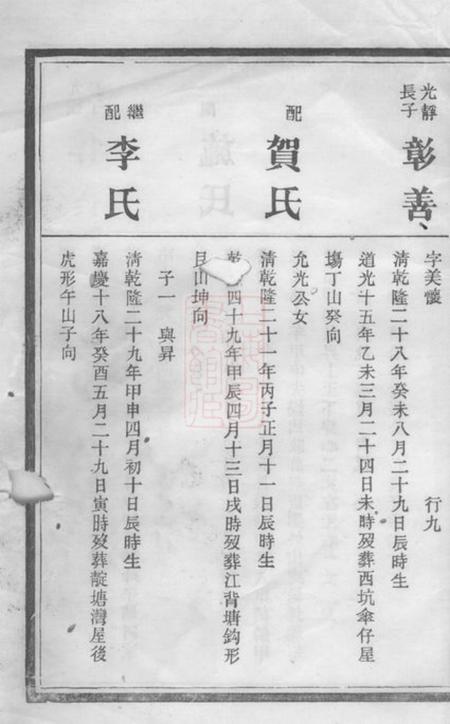 光靜
長子
彰善、
字美懷　行九
清乾隆二十八年癸未八月二十九日辰時生
道光十五年乙未三月二十四日未時歿葬西坑傘仔星
塲丁山癸向
配
賀氏
允光公女
清乾隆二十一年丙子正月十一日辰時生
乾 四十九年甲辰四月十三日戌時歿葬江背塘鈎形
艮山坤向
子一　與昇
繼
配
李氏
清乾隆二十九年甲申四月初十日辰時生
嘉慶十八年癸酉五月二十九日寅時歿葬靛塘灣屋後
虎形午山子向